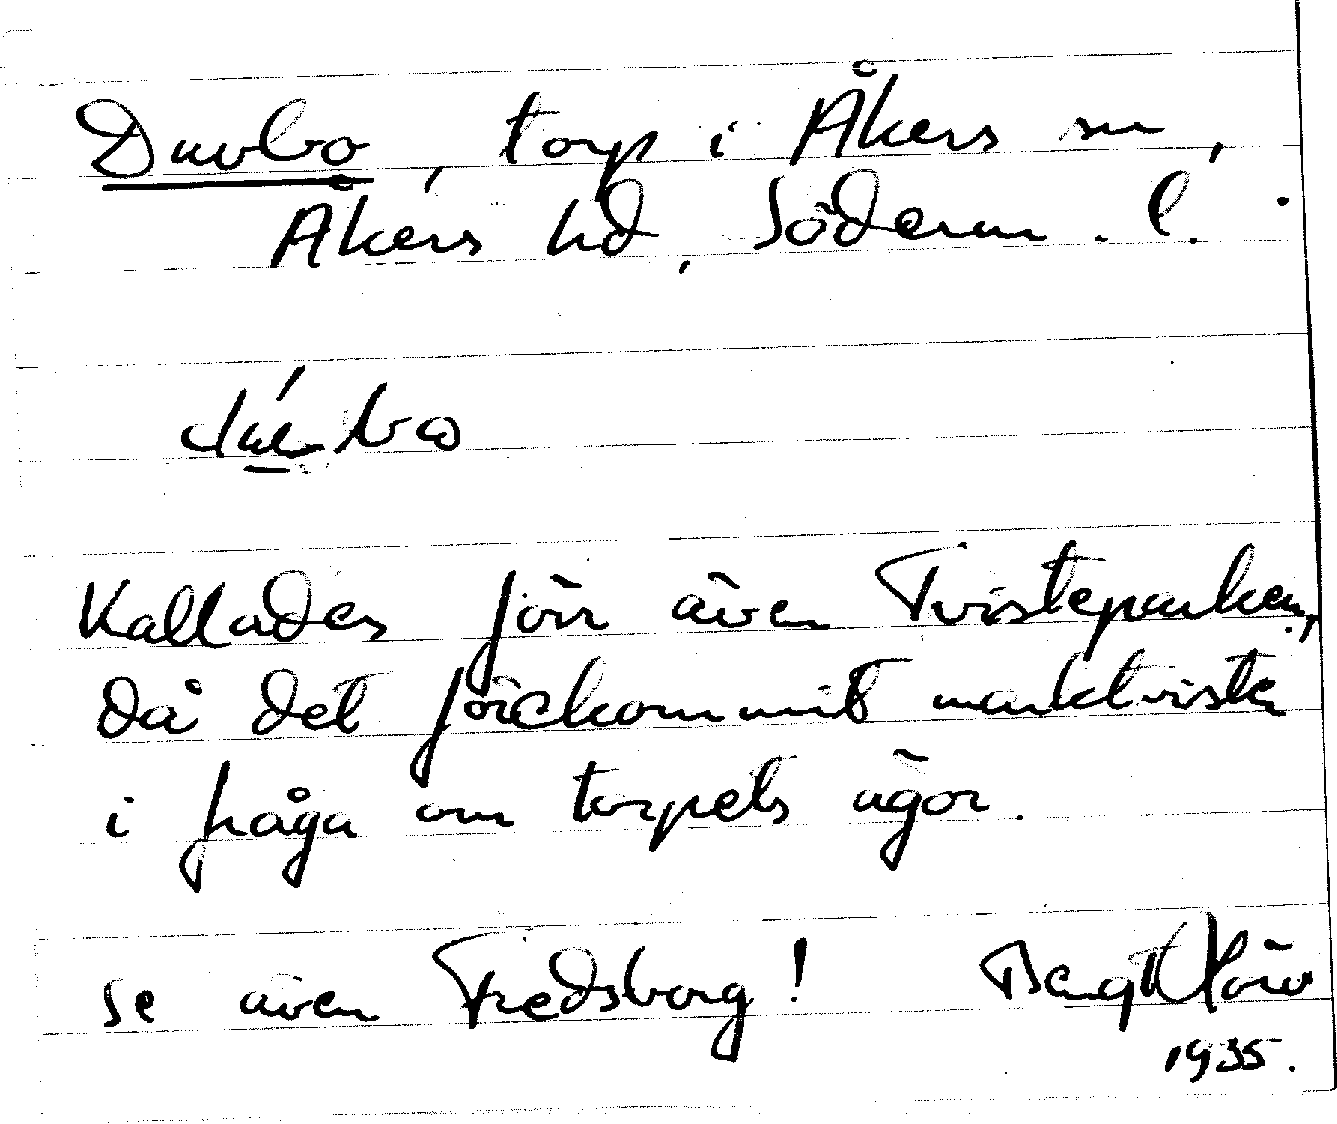 Duvbo, torp i Åkers sn,
Åkers hd, Söderm. l.
Kallades förr även Tvisteparken,
då det förekommit marktvister
i fråga om torpets ägor.
se även Fredsborg! Bengt
1935.